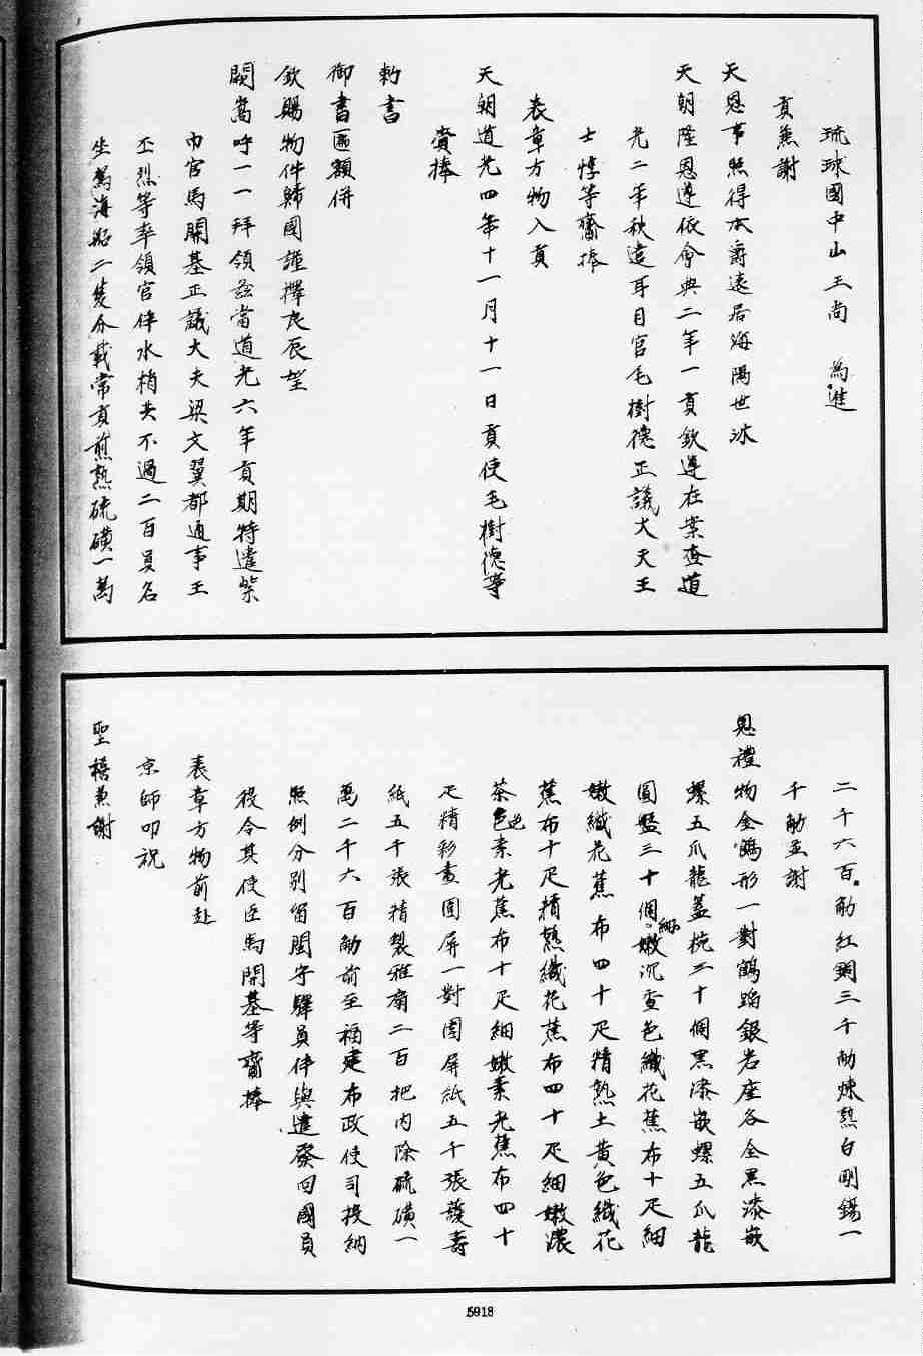 琉球國中山王尚　為進
貢兼謝
天恩事照得本爵遠居海隅世沐
天朝隆恩遵依會典二年一貢欽遵在案查道
光二年秋遣耳目官毛樹德正議大夫王
士惇等齎捧
表章方物入貢
天朝道光四年十一月十一日貢使毛樹德等
賫捧
勅書
御書匾額併
欽賜物件歸國謹擇良辰望
闕嵩呼一一拜領茲當道光六年貢期特遣紫
巾官馬開基正議大夫梁文翼都通事王
丕烈等率領官伴水梢共不過二百員名
坐駕海船二隻分載常貢煎熟硫磺一萬
二千六百觔紅銅三千觔煉熟白剛錫一
千觔並謝
恩禮物金鶴形一對鶴蹈銀岩座各全黑漆嵌
螺五爪龍蓋椀三十個黑漆嵌螺五爪龍
圓盤三十個細嫩沉香色織花蕉布十疋細
嫩織花蕉布四十疋精熟土黃色織花
蕉布十疋精熟織花蕉布四十疋細嫩濃
茶色素光蕉布十疋細嫩素光蕉布四十
疋精彩畫圍屏一對圍屏紙五千張護壽
紙五千張精製雅扇二百把內除硫磺一
萬二千六百觔前至福建布政使司投納
照例分別留閩守驛員伴與遣發回國員
役令其使臣馬開基等齎捧
表章方物前赴
京師叩祝
聖禧兼謝
5918